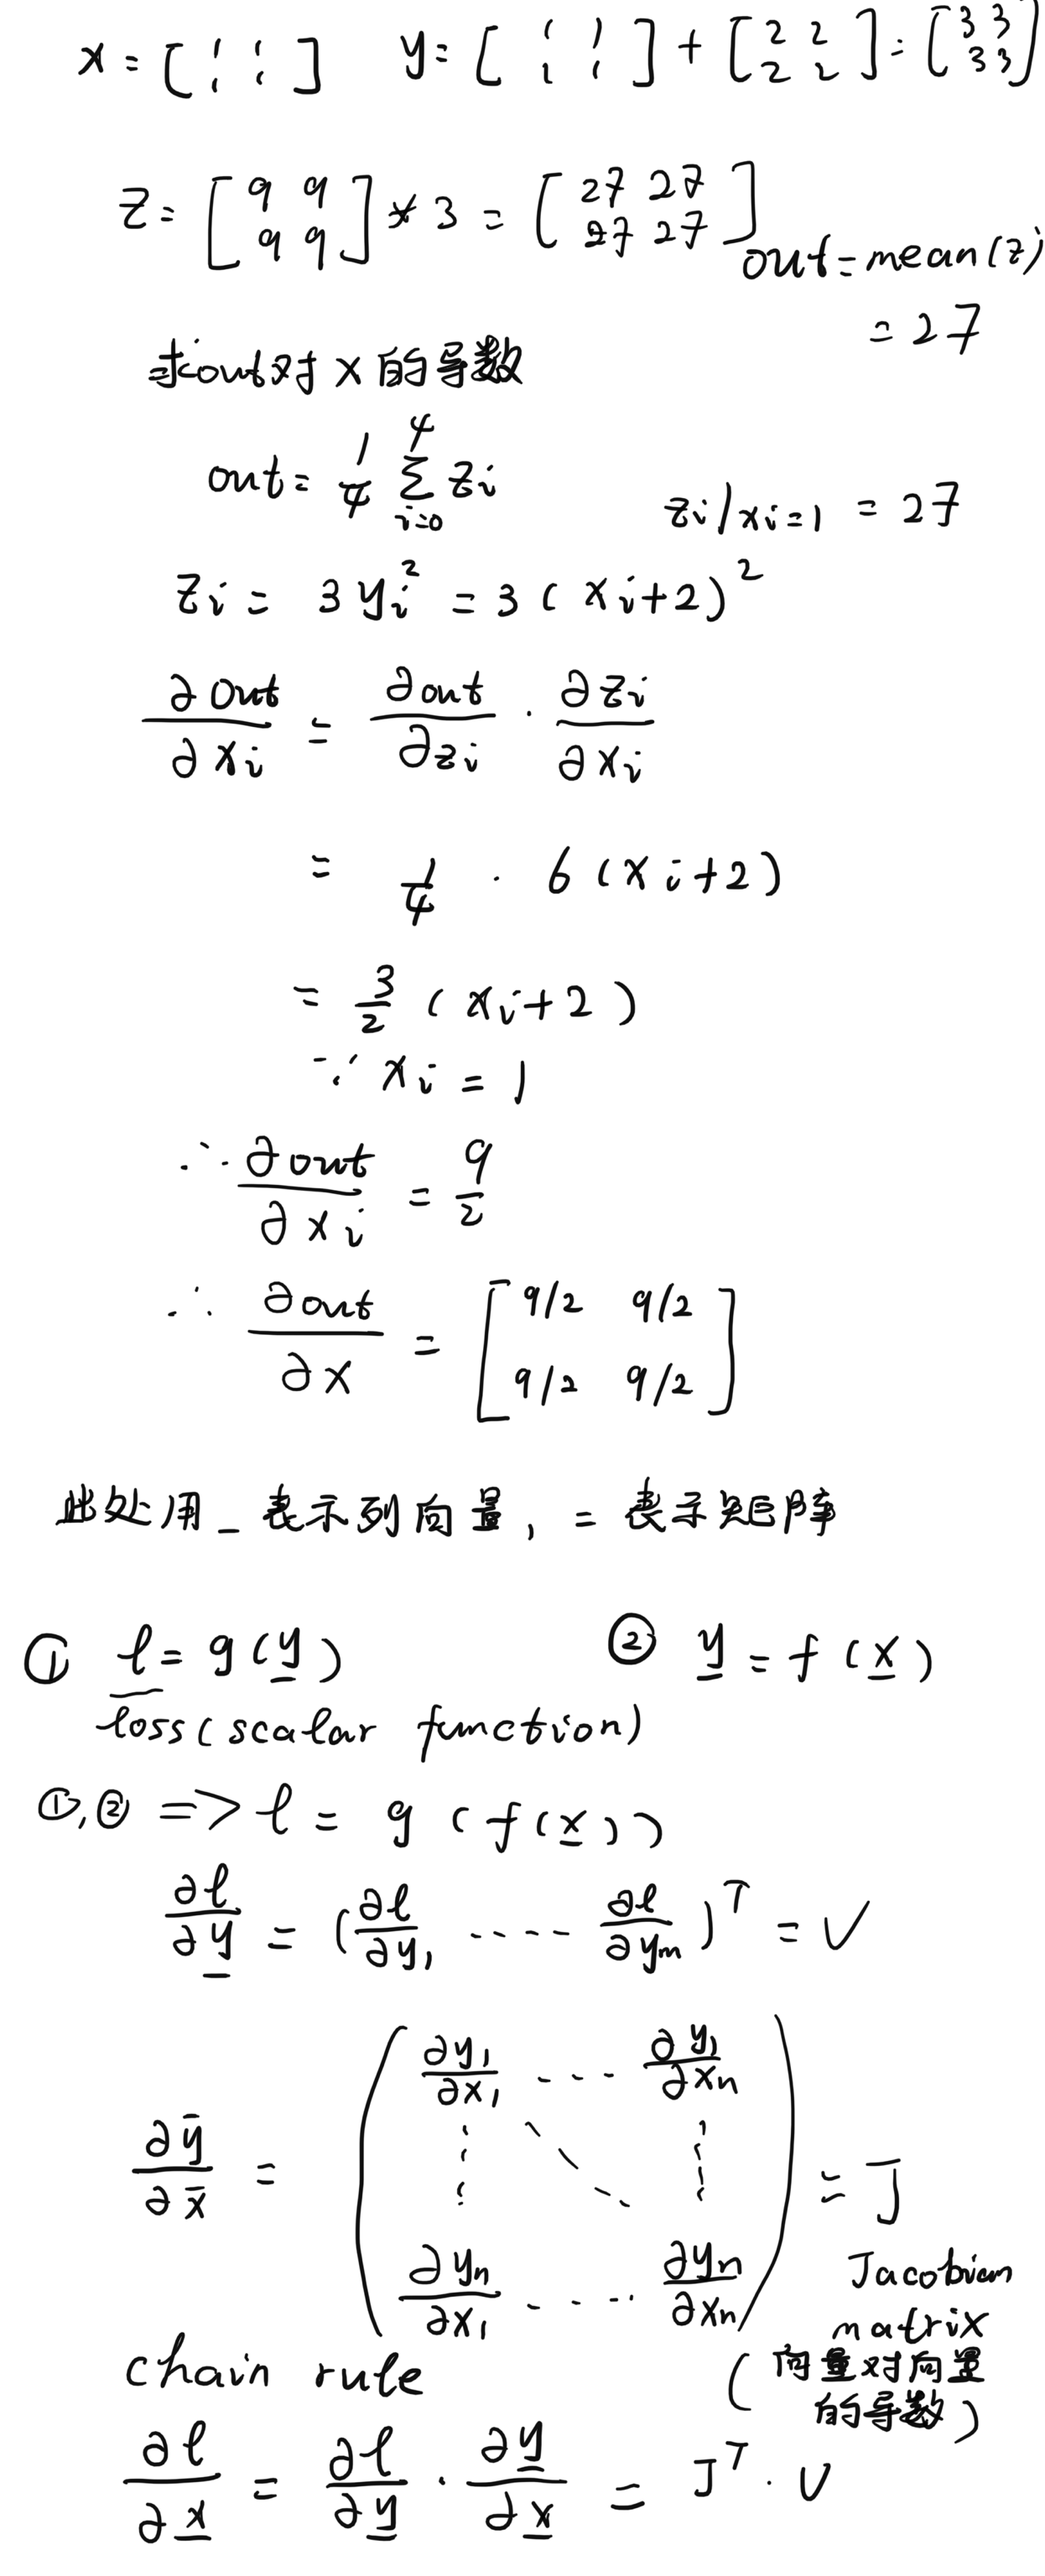 x = [ 1 1 1 1 ] y = [ 1 1 1 1 ] + [ 2 2 2 2 ] = [ 3 3 3 3 ]
z = [ 9 9 9 9 ] * 3 = [ 27 27 27 27 ]
out = mean(z)
= 27
求out对x的导数
out = 1/4 Σ_{i=0}^{4} zi zi|xi=1 = 27
zi = 3yi² = 3(xi+2)²
∂out/∂xi = ∂out/∂zi · ∂zi/∂xi
= 1/4 · 6(xi+2)
= 3/2 (xi+2)
∵ xi = 1
∴ ∂out/∂xi = 9/2
∴ ∂out/∂x = [ 9/2 9/2 9/2 9/2 ]
此处用_表示列向量, = 表示矩阵
① l = g(y) ② y = f(x)
loss(scalar function)
①,② => l = g(f(x))
∂l/∂y = (∂l/∂y1 ---- ∂l/∂ym)ᵀ = v
∂y/∂x = ( ∂y1/∂x1 --- ∂y1/∂xn ⋮ ⋱ ⋮ ∂yn/∂x1 --- ∂yn/∂xn ) = J
Jacobian
matrix
chain rule (向量对向量
的导数)
∂l/∂x = ∂l/∂y · ∂y/∂x = Jᵀ · v